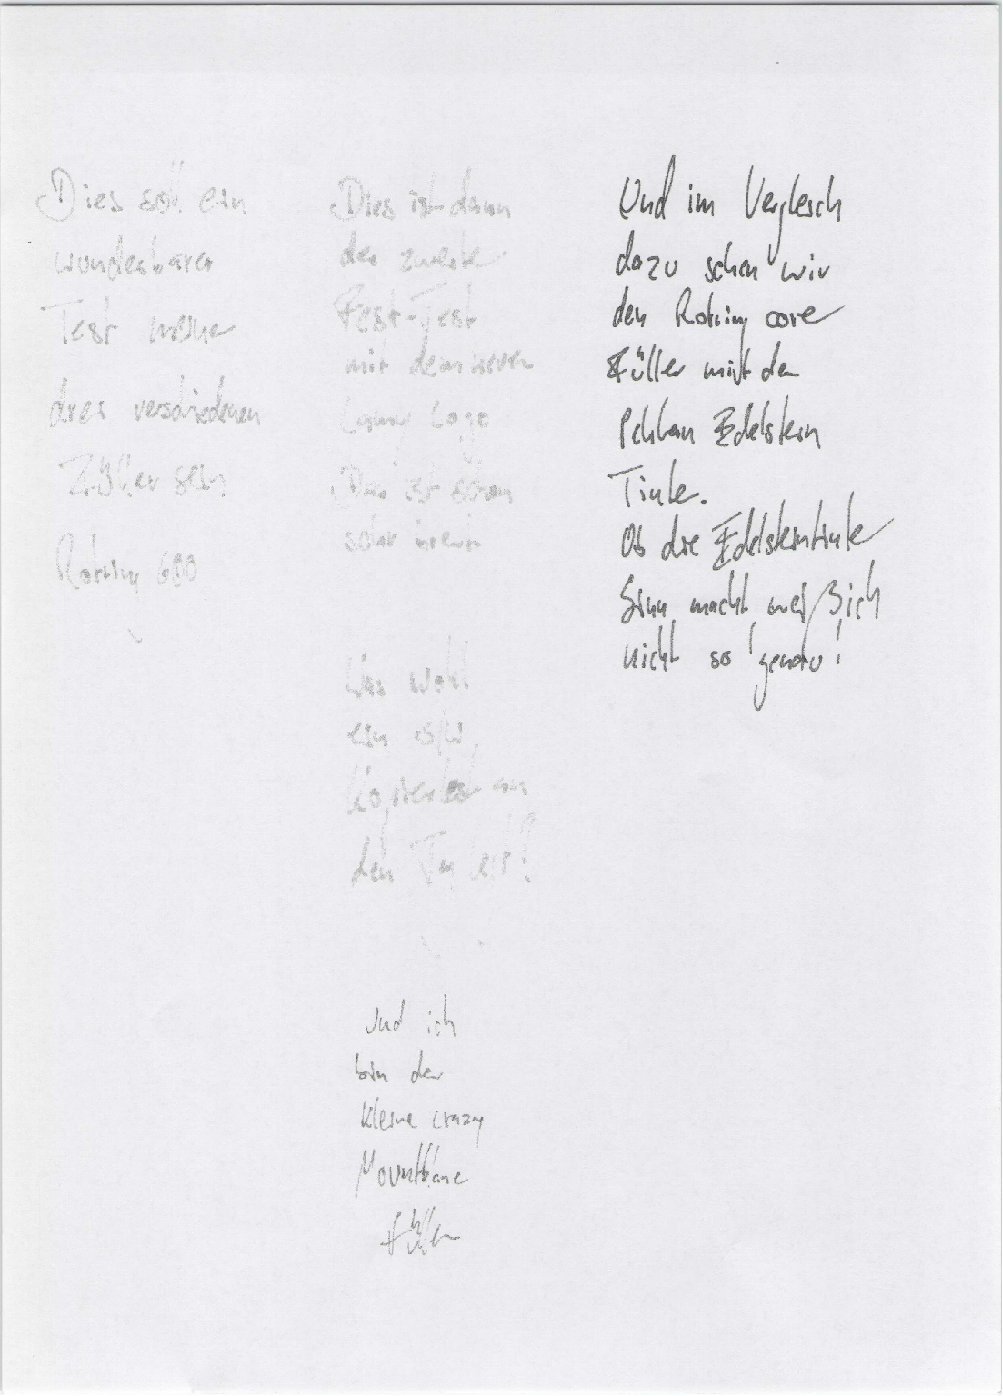 Dies soll ein
wunderbarer
Test meiner
drei verschiedenen
Füller sein
Rotring 600
Dies ist dann
der zweite
Test-Test
mit dem neuen
Lamy Logo
Dies ist schon
sehr
wohl
ein
den
Und ich
bin der
kleine crazy
Mountblanc
Füller
Und im Vergleich
dazu sehen wir
den Rotring core
Füller mit der
Pelikan Edelstein
Tinte.
Ob die Edelsteintinte
Sinn macht weiß ich
nicht so genau!